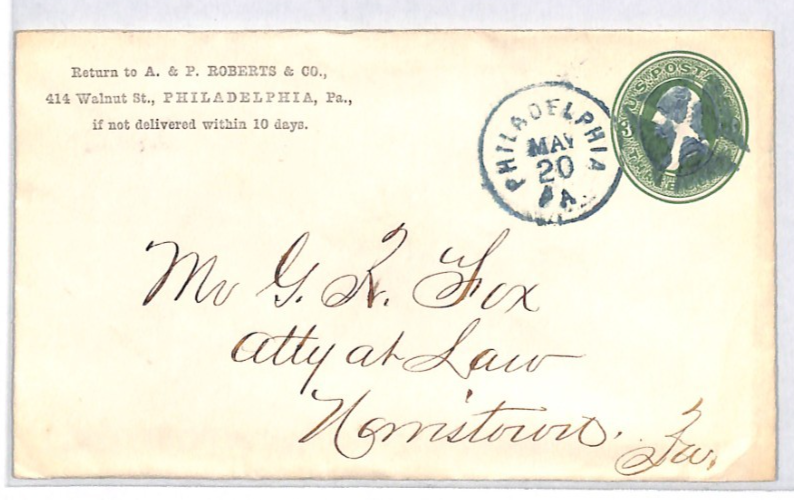 Return to A. & P. ROBERTS & CO.,
414 Walnut St., PHILADELPHIA, Pa.,
if not delivered within 10 days.
PHILADELPHIA
MAY
20
PA
U.S. POST
3
Mr G. R. Fox
Atty at Law
Norristown. Pa.